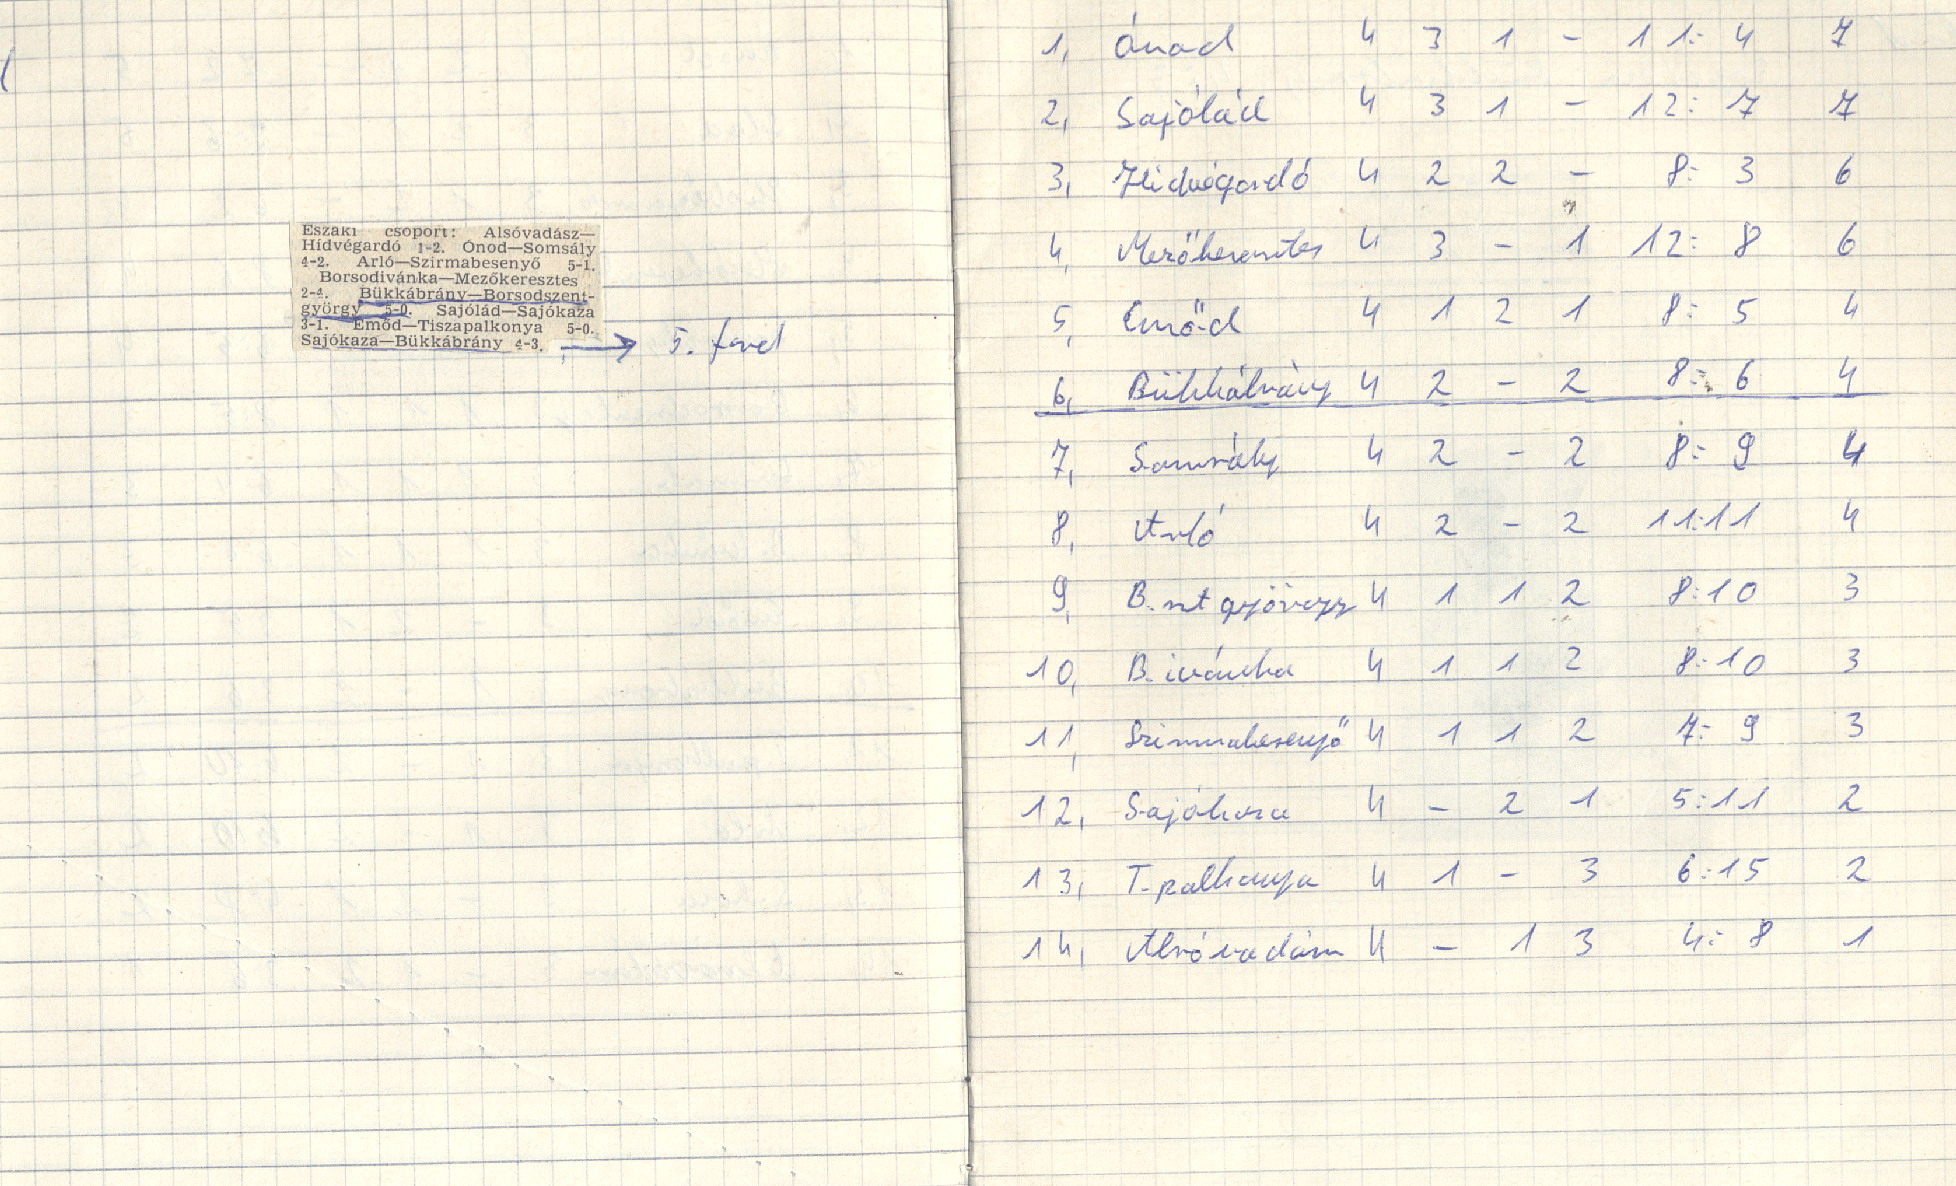 Északi csoport: Alsóvadász—
Hídvégardó 1-2. Ónod—Somsály
4-2. Arló—Szirmabesenyő 5-1.
Borsodivánka—Mezőkeresztes
2-4. Bükkábrány—Borsodszent-
györgy 5-0. Sajólád—Sajókaza
3-1. Emőd—Tiszapalkonya 5-0.
Sajókaza—Bükkábrány 4-3.
→ 5. ford
1, Ónod 4 3 1 - 11: 4 7
2, Sajólád 4 3 1 - 12: 7 7
3, Hidvégardó 4 2 2 - 8: 3 6
4, Mezőkeresztes 4 3 - 1 12: 8 6
5, Emőd 4 1 2 1 8: 5 4
6, Bükkábrány 4 2 - 2 8: 6 4
7, Somsály 4 2 - 2 8: 9 4
8, Arló 4 2 - 2 11:11 4
9, B.sztgyörgy 4 1 1 2 8:10 3
10, B.ivánka 4 1 1 2 8:10 3
11, Szirmabesenyő 4 1 1 2 7: 9 3
12, Sajókaza 4 - 2 1 5:11 2
13, T.palkonya 4 1 - 3 6:15 2
14, Alsóvadász 4 - 1 3 4: 8 1